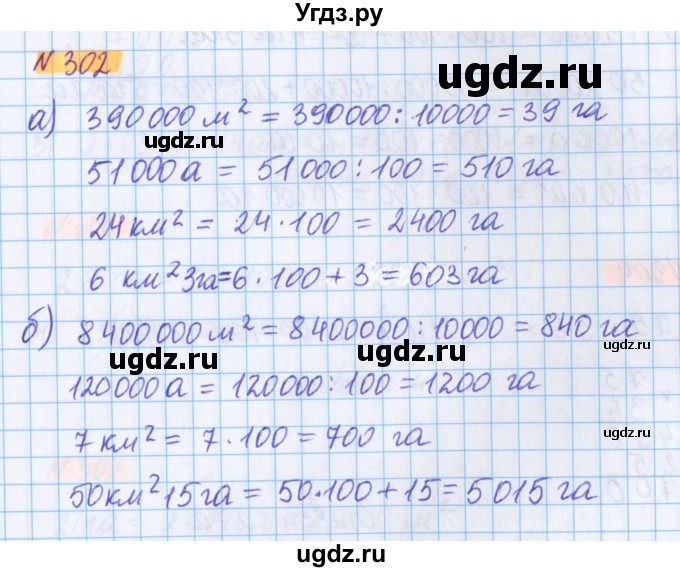 Угдз.ру
№ 302
ugdz.ru
а) 390000 м² = 390000 : 10000 = 39 га
ugdz.ru
ugdz.ru
51000 а = 51000 : 100 = 510 га
24 км² = 24 · 100 = 2400 га
ugdz.ru
6 км² 3га = 6 · 100 + 3 = 603 га
б) 8400000 м² = 8400000 : 10000 = 840 га
ugdz.ru
ugdz.ru
120000 а = 120000 : 100 = 1200 га
7 км² = 7 · 100 = 700 га
ugdz.ru
50 км² 15 га = 50 · 100 + 15 = 5015 га
ugdz.ru
ugdz.ru
ugdz.ru